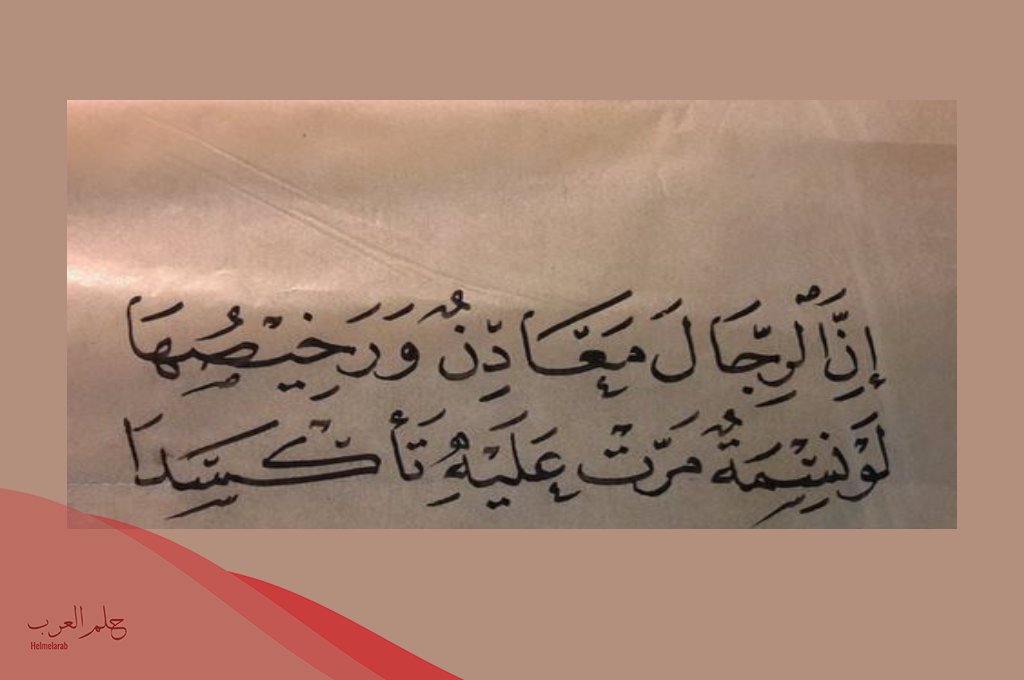 إِنَّ الرِّجَالَ مَعَادِنٌ وَرَخِيْصُهَا
لَوْ نِسْمَةٌ مَرَّتْ عَلَيْهِ تَأَكْسَدَا
حلم العرب
Helmelarab